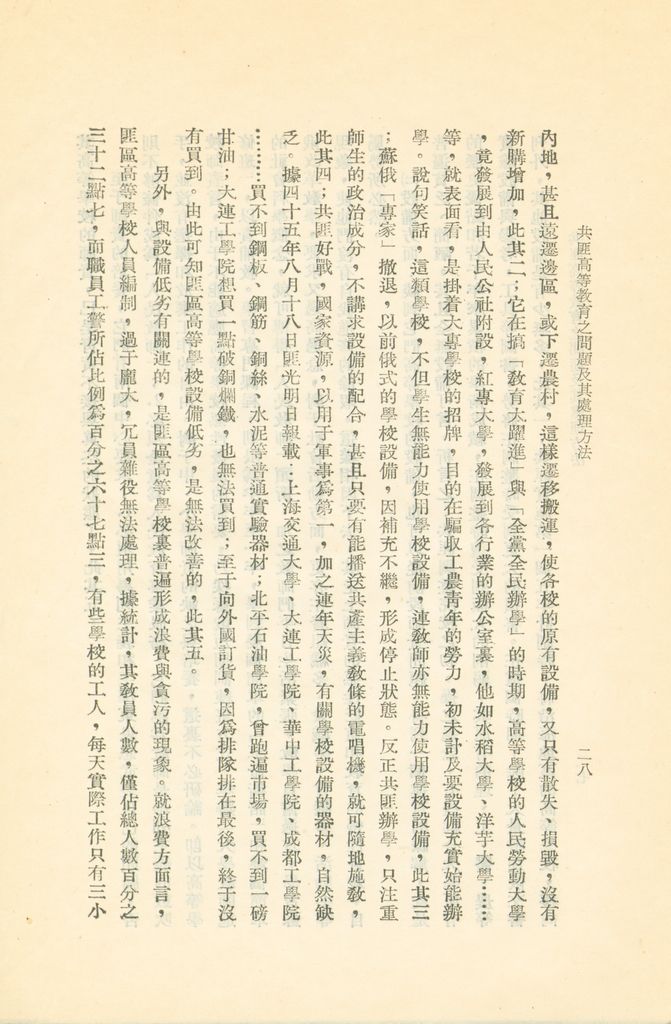 共匪高等教育之問題及其處理方法
二八
內地，甚且遠遷邊區，或下遷農村，這樣遷移搬運，使各校的原有設備，又只有散失、損毀，沒有
新購增加，此其二；它在搞「教育大躍進」與「全黨全民辦學」的時期，高等學校的人民勞動大學
，竟發展到由人民公社附設，紅專大學，發展到各行業的辦公室裏，他如水稻大學、洋芋大學……
等，就表面看，是掛着大專學校的招牌，目的在騙取工農青年的勞力，初未計及要設備充實始能辦
學。說句笑話，這類學校，不但學生無能力使用學校設備，連教師亦無能力使用學校設備，此其三
；蘇俄「專家」撤退，以前俄式的學校設備，因補充不繼，形成停止狀態。反正共匪辦學，只注重
師生的政治成分，不講求設備的配合，甚且只要有能播送共產主義教條的電唱機，就可隨地施教，
此其四；共匪好戰，國家資源，以用于軍事爲第一，加之連年天災，有關學校設備的器材，自然缺
乏。據四十五年八月十八日匪光明日報載：上海交通大學、大連工學院、華中工學院、成都工學院
………買不到鋼板、鋼筋、銅絲、水泥等普通實驗器材；北平石油學院，曾跑遍市場，買不到一磅
甘油；大連工學院想買一點破銅爛鐵，也無法買到；至于向外國訂貨，因爲排隊排在最後，終于沒
有買到。由此可知匪區高等學校設備低劣，是無法改善的，此其五。
另外，與設備低劣有關連的，是匪區高等學校裏普遍形成浪費與貪污的現象。就浪費方面言，
匪區高等學校人員編制，過于龐大，冗員雜役無法處理，據統計，其教員人數，僅佔總人數百分之
三十二點七，而職員工警所佔比例爲百分之六十七點三，有些學校的工人，每天實際工作只有三小